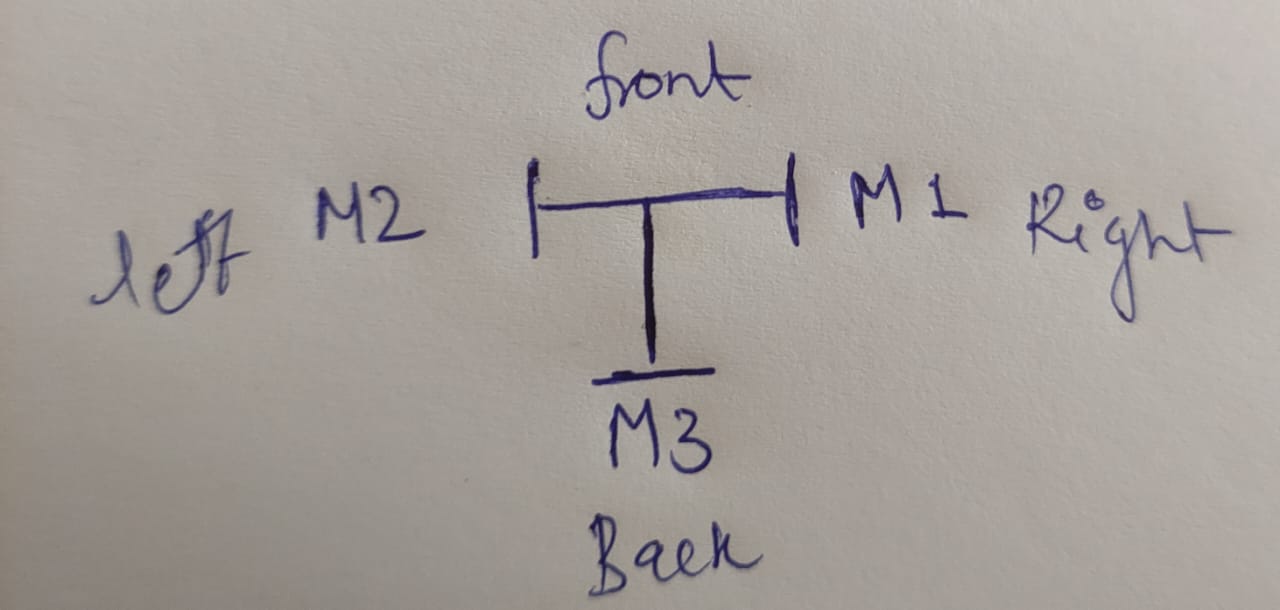 front
left M2 M1 Right
M3
Back